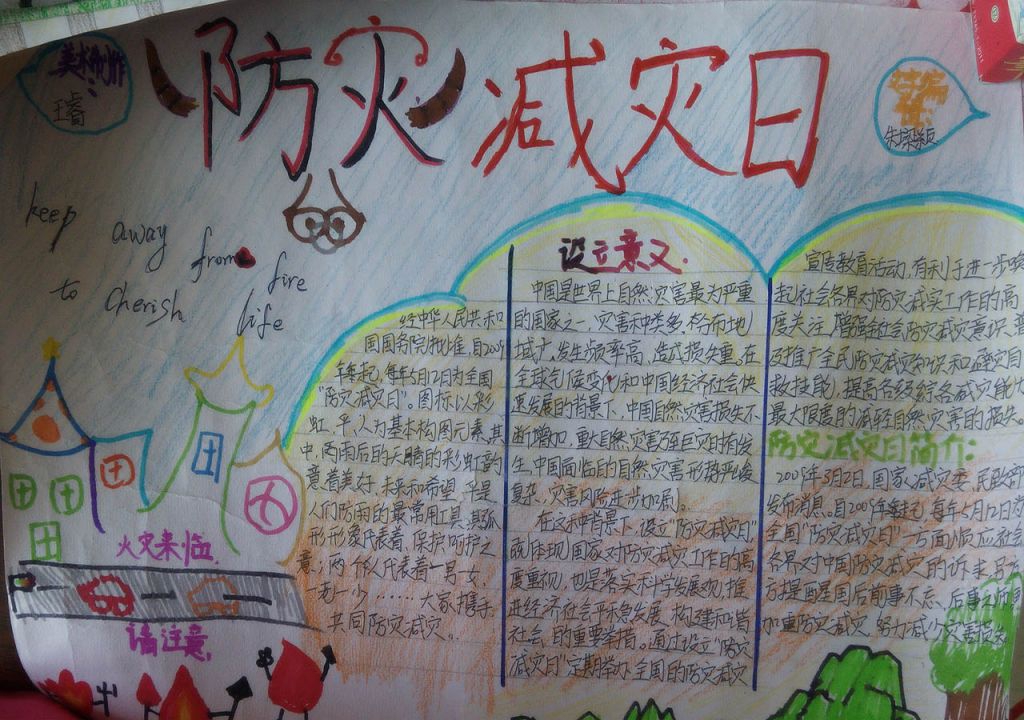 防灾减灾日
美术制作:
王睿
keep away from fire
to cherish life
经中华人民共和
国国务院批准,自2009
年起,每年5月12日为全国
"防灾减灾日"。图标以彩
虹、伞、人为基本构图元素。其
中,雨后的天晴的彩虹韵
意着美好、未来和希望,伞是
人们防雨的最常用工具,其弧
形形象代表着,保护、呵护之
意。两个人代表着一男一女,
一老一少……大家携手,
共同防灾减灾。
火灾来临
请注意,
设立意义.
中国是世界上自然灾害最为严重
的国家之一,灾害种类多,分布地
域广,发生频率高,造成损失重。在
全球气候变化和中国经济社会快
速发展的背景下,中国自然灾害损失不
断增加,重大自然灾害乃至巨灾时有发
生,中国面临的自然灾害形势严峻
复杂,灾害风险进一步加剧。
在这种背景下,设立"防灾减灾日",
既体现国家对防灾减灾工作的高
度重视,也是落实科学发展观,推
进经济社会平稳发展,构建和谐
社会的重要举措。通过设立"防灾
减灾日"定期举办全国的防灾减灾
宣传教育活动,有利于进一步唤
起社会各界对防灾减灾工作的高
度关注,增强社会防灾减灾意识,普
及推广全民防灾减灾知识和避灾自
救技能,提高各级综合减灾能力,
最大限度的减轻自然灾害的损失。
防灾减灾日简介:
国家减灾委、民政部
发布消息。自2009年起,每年5月12日为
全国"防灾减灾日"一方面顺应社会
各界对中国防灾减灾的诉求,另一
方提醒国后前事不忘、后事之师,
加重防灾减灾,努力减少灾害损失。